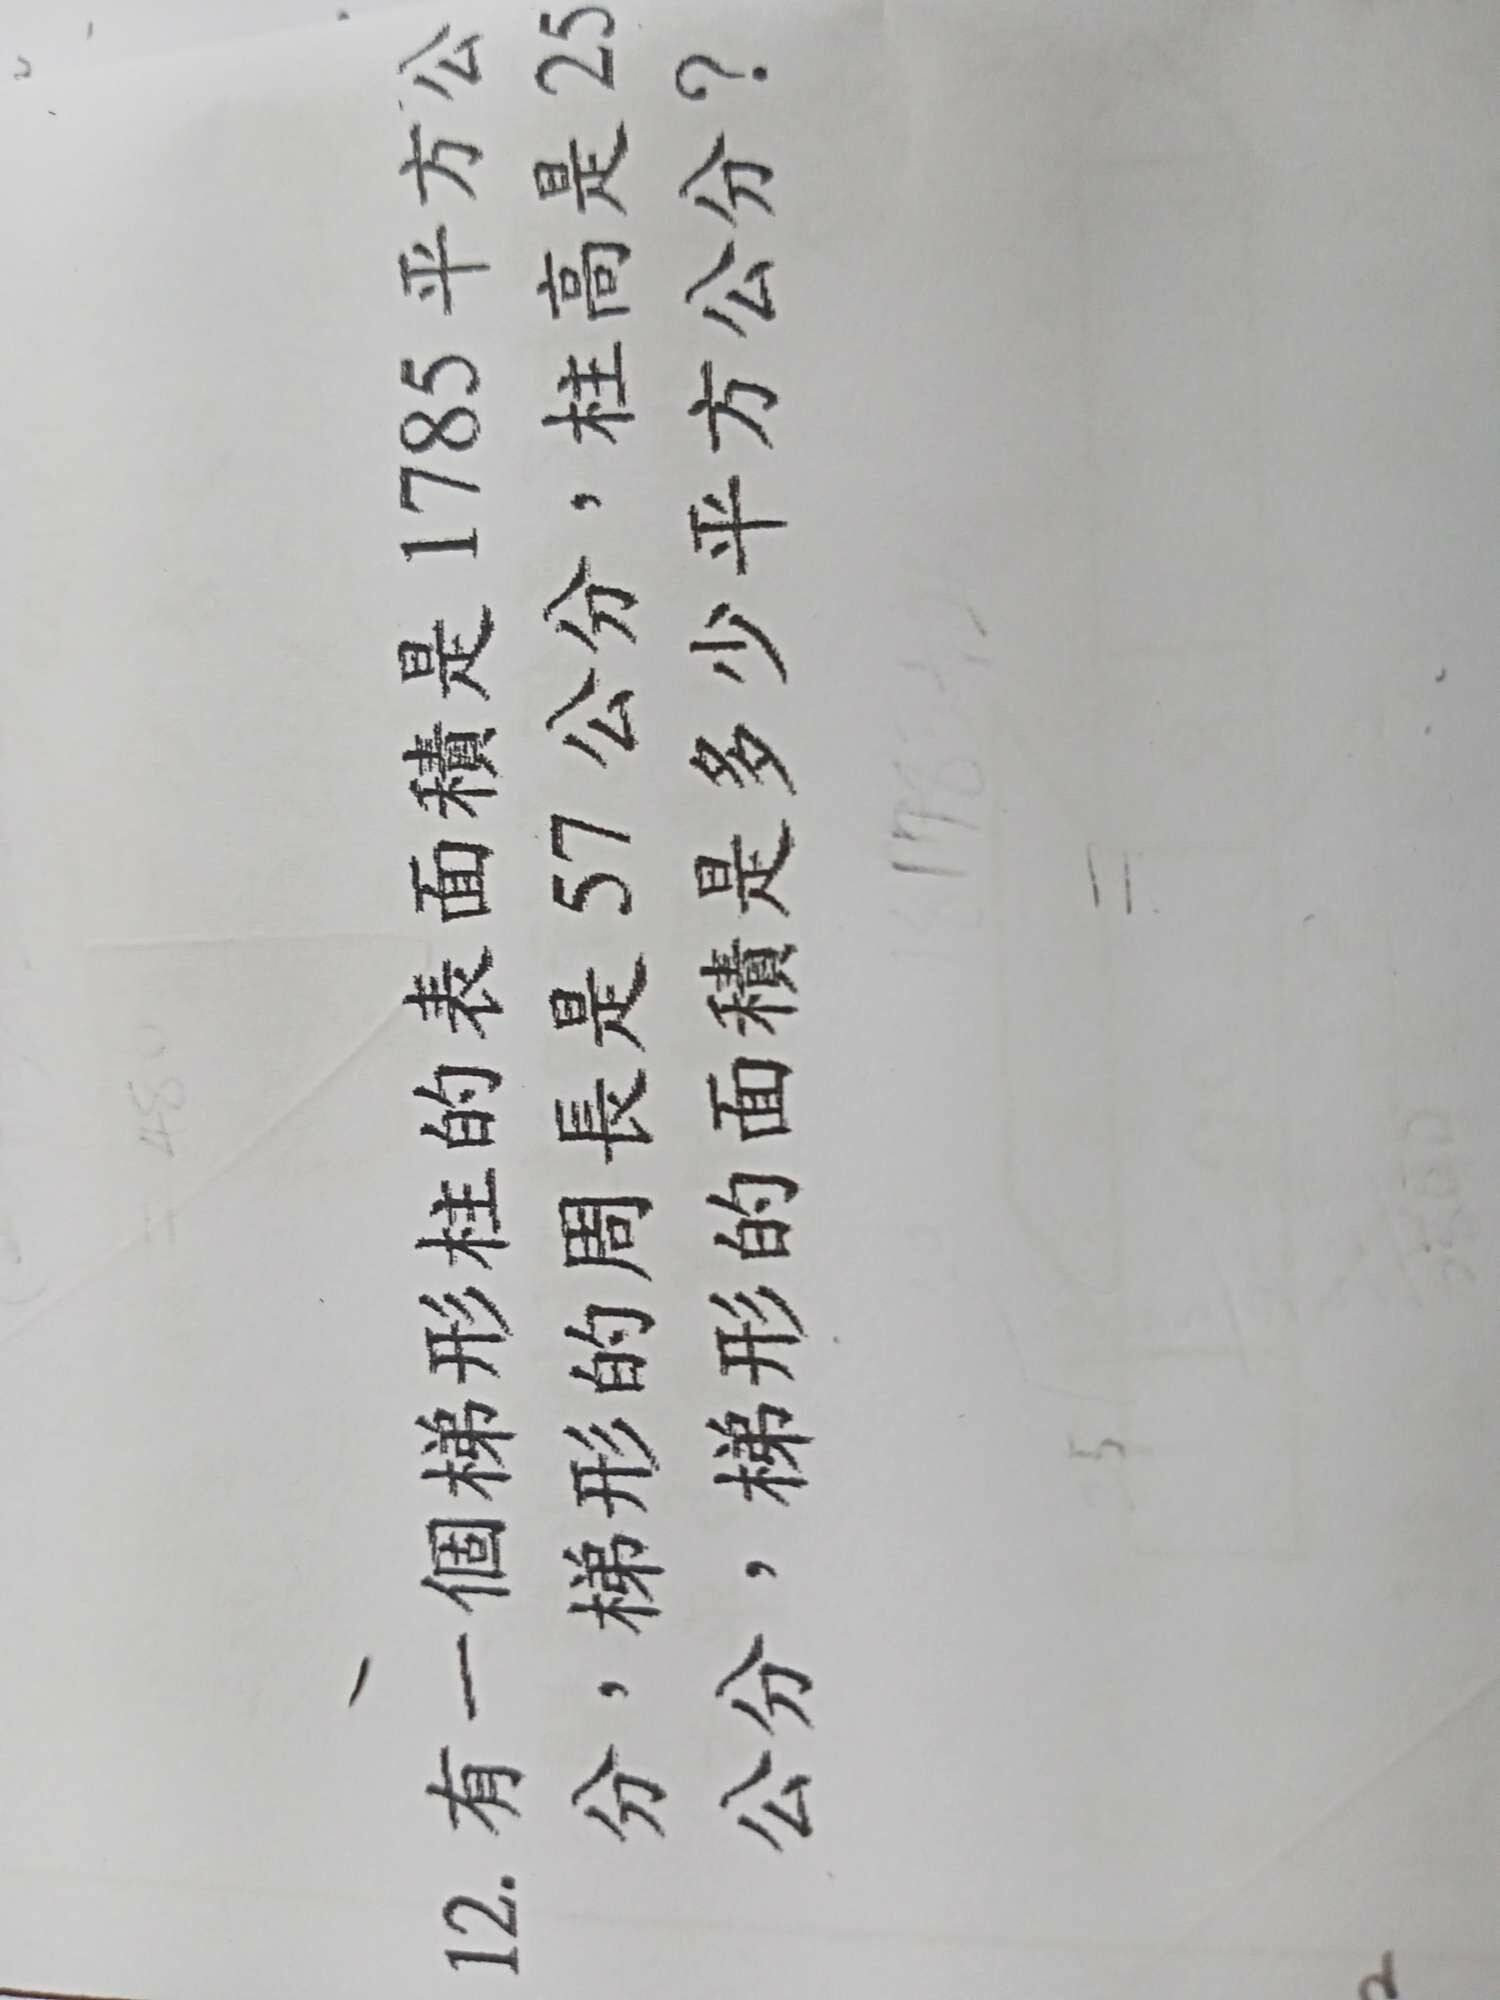 12. 有一個梯形柱的表面積是 1785 平方公
分，梯形的周長是 57 公分，柱高是 25
公分，梯形的面積是多少平方公分？